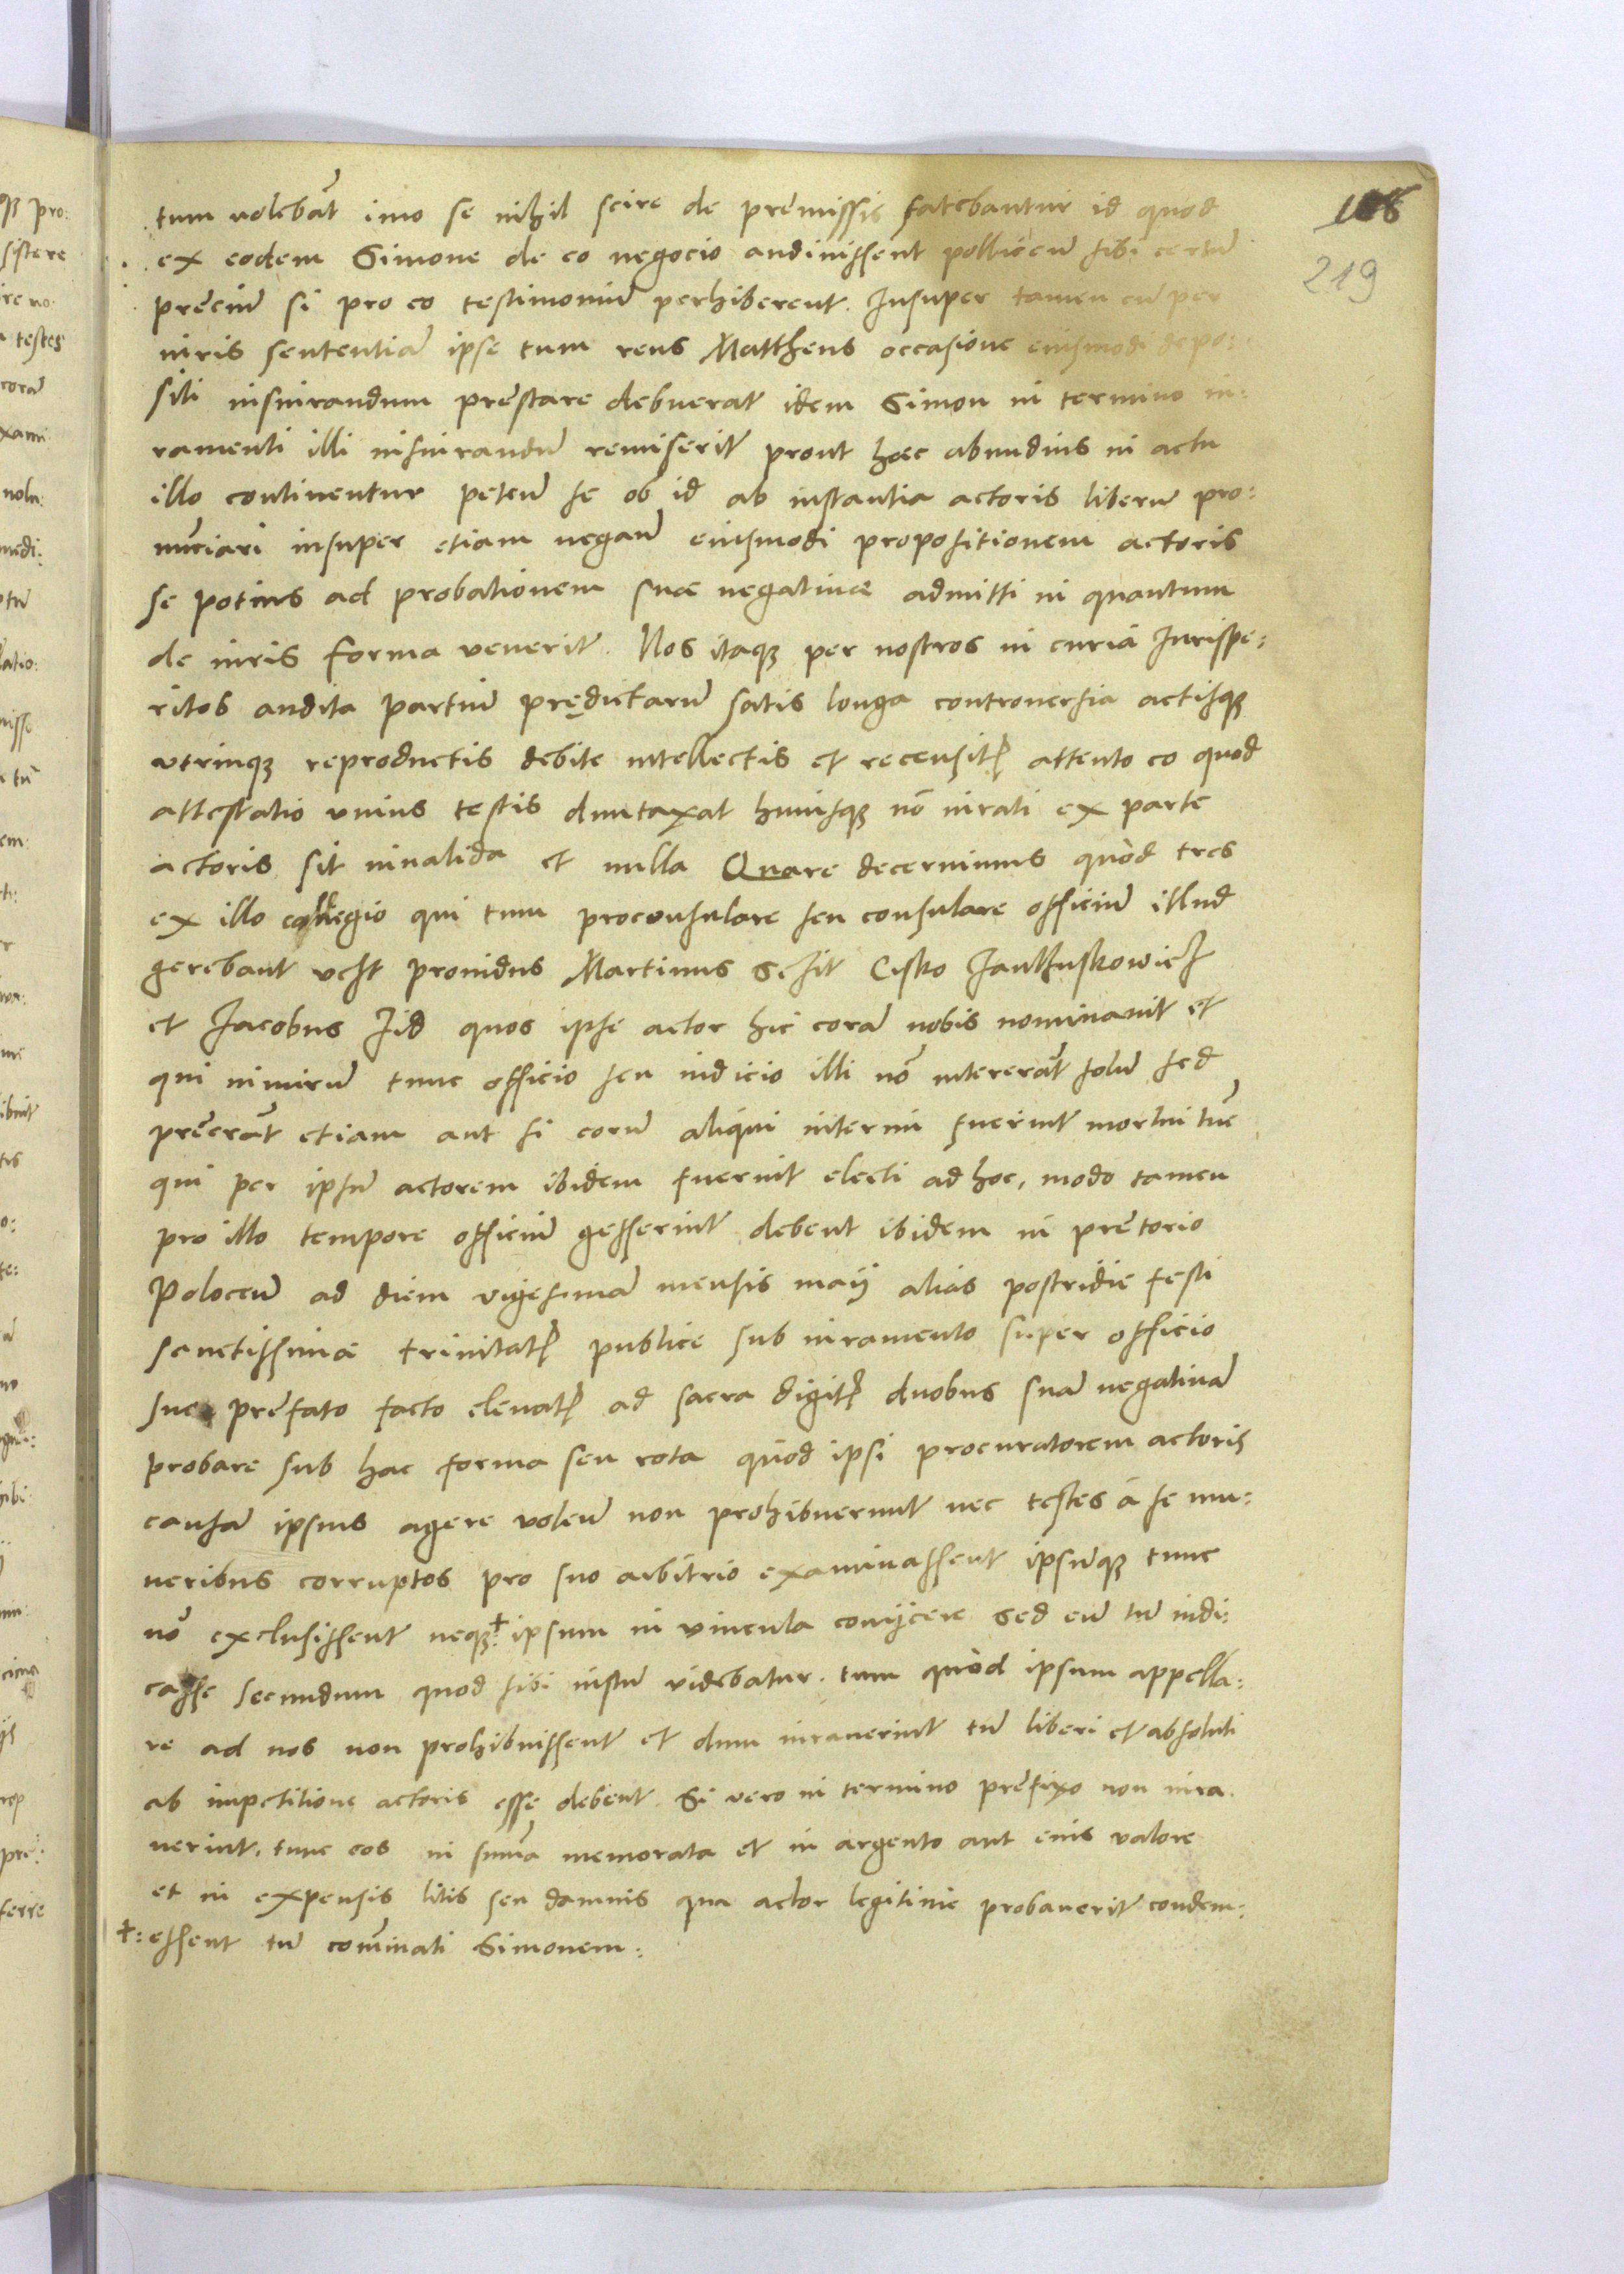 108
219
tum volebāt imo se nihil scire de premissis fatebantur id quod
ex eodem Simone de eo negocio audivissent pollicen̄ sibi certū
precium si pro eo testimoniū perhiberent. Insuper tamen cū per
iuris sententiā ipse tum reus Mattheus occasione eiusmodi depo:
siti iusiurandum prestare debuerat idem Simon in termino iu:
ramenti illi iusiurandū remiserit prout haec abundius in actu
illo continentur peten̄ se ob id ab instantia actoris liberū pro:
nunciari insuper etiam negan̄ eiusmodi propositionem actoris
se potius ad probationem suae negativae admitti in quantum
de iuris forma venerit. Nos itaqꝫ per nostros in curia Iurispe:
ritos audita partiū prędictarū satis longa controversia actisqꝫ
utrinqꝫ reproductis debite intellectis et recensitꝭ attento eo quod
attestatio unius testis duntaxat huiusqꝫ nō iurati ex parte
actoris sit invalida et nulla Quare decernimus quòd tres
ex illo collegio qui tum proconsulare seu consulare officiū illud
gerebant videlicet providus Martinus Schit Cisko Janthuskowicz
et Jacobus Zid quos ipse actor hic corā nobis nominavit et
qui nimirū tunc officio seu iudicio illi nō intererāt solū sed
preerāt etiam aut si eorū aliqui interim fuerint mortui tūc
qui per ipsū actorem ibidem fuerint electi ad hoc, modo tamen
pro illo tempore officiū gesserint debent ibidem in pretorio
Polocen̄ ad diem vigesimā mensis maij alias postridie festi
sanctissimae trinitatꝭ publice sub iuramento super officio
suo prefato facto elevatꝭ ad sacra digitꝭ duobus suā negativā
probare sub hac forma seu rota quòd ipsi procuratorem actoris
causā ipsius agere volen̄ non prohibuerunt nec testes à se mu:
neribus corruptos pro suo arbitrio examinassent ipsumqꝫ tunc
nō exclusissent neqꝫ ✝ ipsum in vincula conijcere sed eū tū iudi:
casse secundum quod sibi iustū videbatur. tum quòd ipsum appella:
re ad nos non prohibuissent et dum iuraverint tū liberi et absoluti
ab impetitione actoris esse debent. Si vero in termino prefixo non iura
verint, tunc eos in summa memorata et in argento aut eius valore
et in expensis litis seu damnis qua actor legitime probaverit condem:
✝: essent tū cominati Simonem: